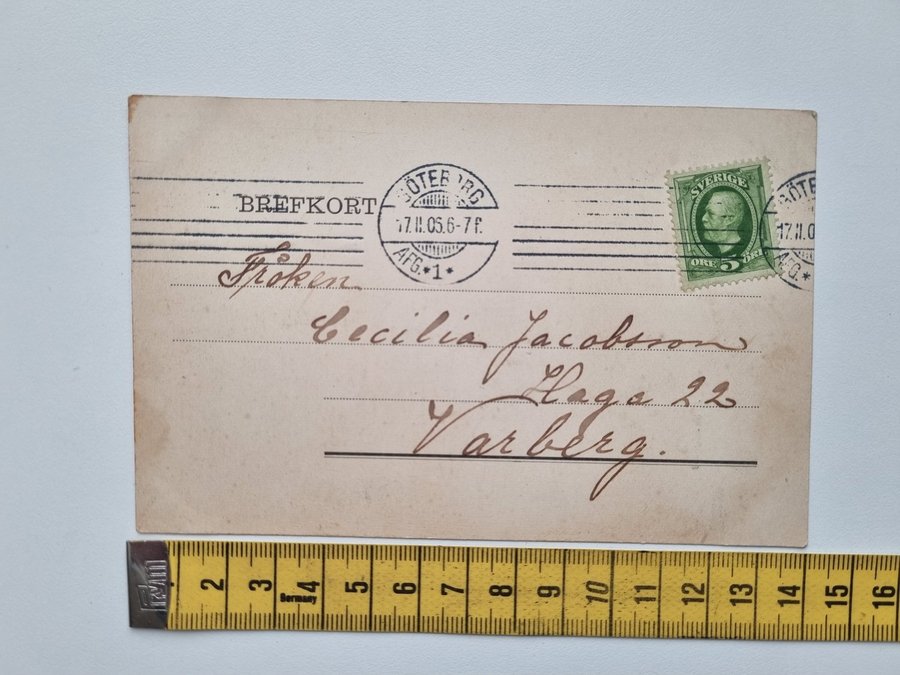 BREFKORT
GÖTEBORG
17.11.05.6-7 F.
AFG.*1*
SVERIGE
ÖRE 5 ÖRE
GÖTE
17.11.0
AFG.*
Fröken
Cecilia Jacobsson
Haga 22
Varberg.
2 3 4 5 6 7 8 9 10 11 12 13 14 15 16
Germany